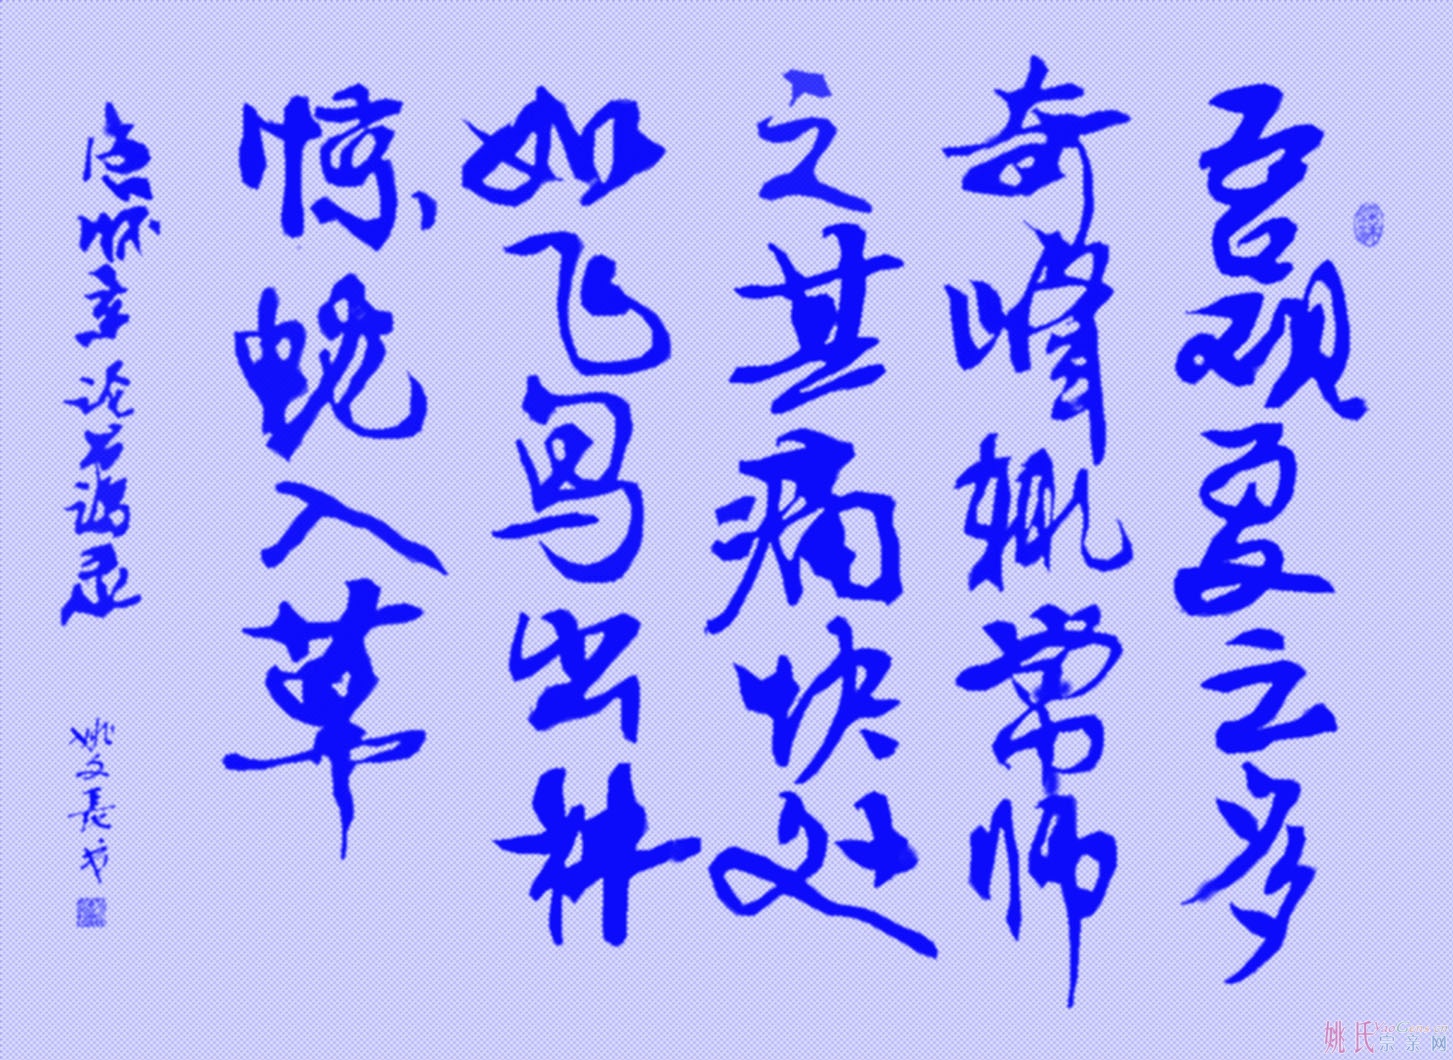 吾观夏云多
奇峰辄常师
之其痛快处
如飞鸟出林
惊蛇入草
唐怀素论书语录
姚文長书
姚氏
宗亲网